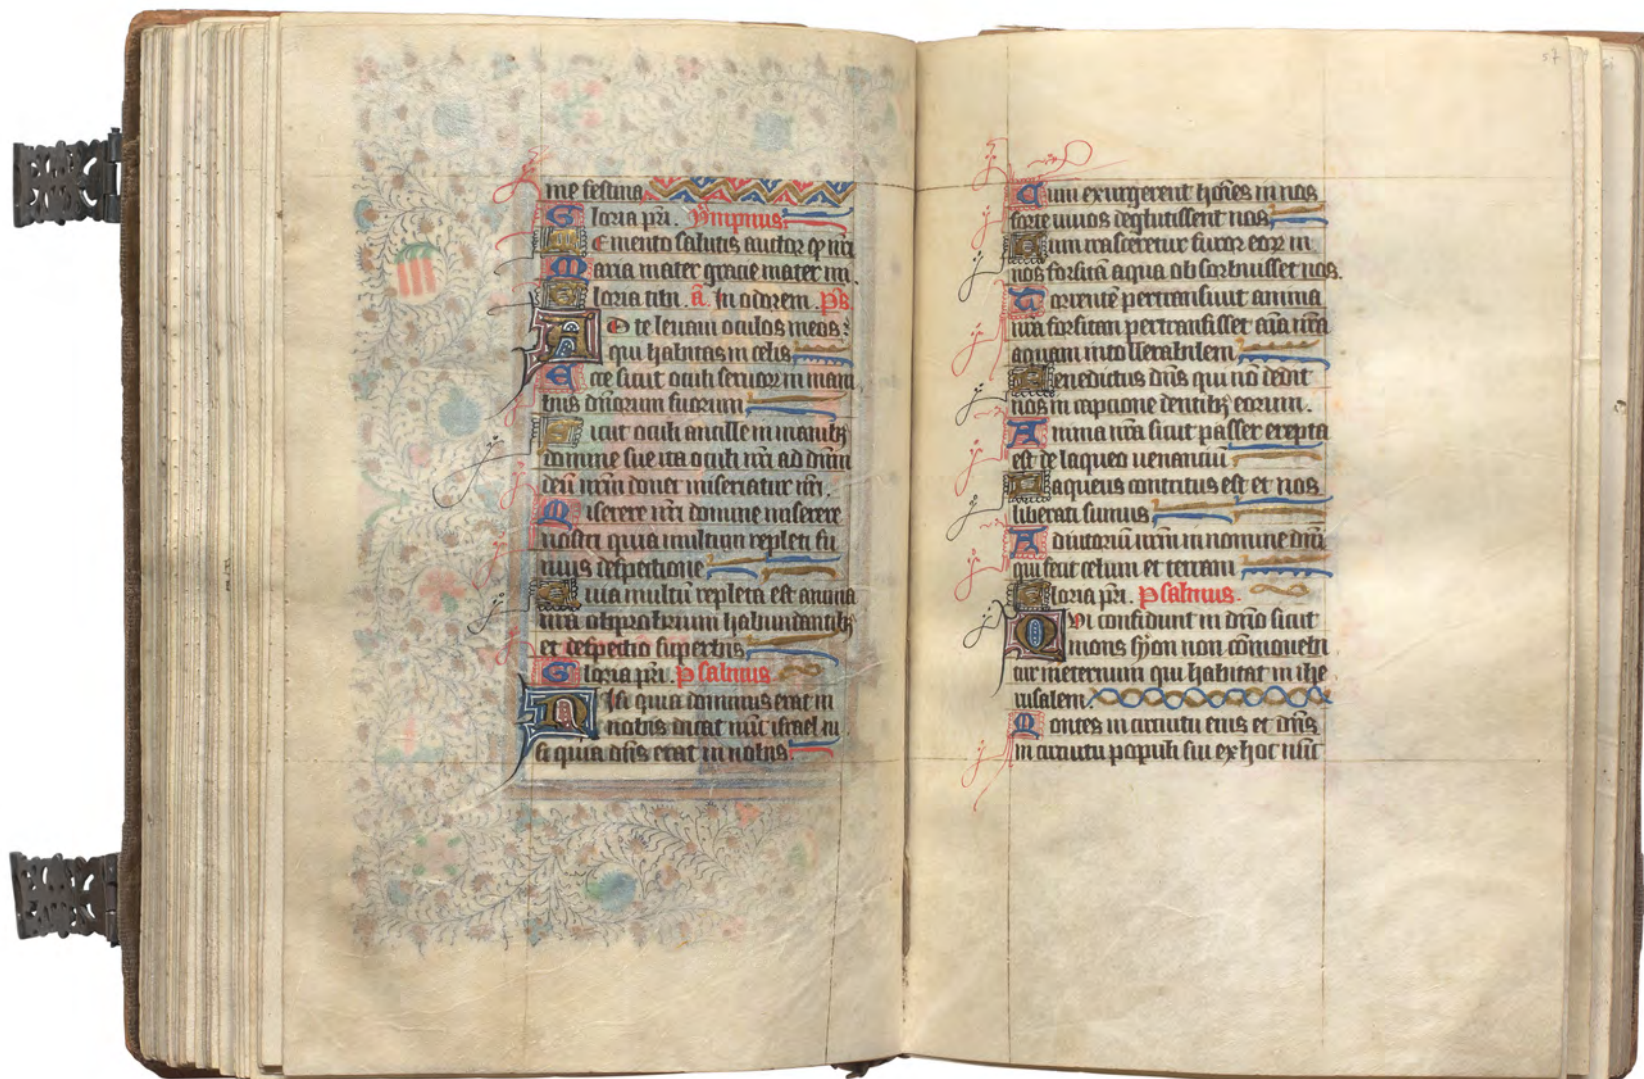 me festina
Gloria pr̄i. Ympnus.
Memento salutis auctor qͦ nr̄i
Maria mater gracie mater mi
Gloria tibi. ā. In odorem. ps̄.
AD te leuaui oculos meos:
qui habitas in celis
Ecce sicut oculi seruoꝝ in mani
bus dn̄orum suorum
Sicut oculi ancille in manibꝫ
domine sue ita oculi nr̄i ad dn̄m
deū nrm̄ donec misereatur nr̄i.
Miserere nr̄i domine miserere
nostri quia multum repleti su
mus despectione
Quia multū repleta est anima
nr̄a obprobrium habundantibꝫ
et despectio superbis
Gloria pr̄i. Psalmus
NIsi quia dominus erat in
nobis dicat nūc israel ni
si quia dn̄s erat in nobis
57
Cum exurgerent hoīes in nos
forte uiuos deglutissent nos
Cum irasceretur furor eoꝝ in
nos forsitā aqua absorbuisset nos.
Torrentē pertransiuit anima
nr̄a forsitan pertransisset aīa nr̄a
aquam intollerabilem
Benedictus dn̄s qui nō dedit
nos in captione dentibꝫ eorum.
Anima nr̄a sicut passer erepta
est de laqueo uenanciū
Laqueus contritus est et nos
liberati sumus
Adiutoriū nrm̄ in nomine dn̄i
qui fecit celum et terram
Gloria pr̄i. Psalmus.
QVi confidunt in dn̄o sicut
mons syon non cōmouebi
tur ineternum qui habitat in ihe
rusalem.
Montes in circuitu eius et dn̄s
in circuitu populi sui ex hoc nūc